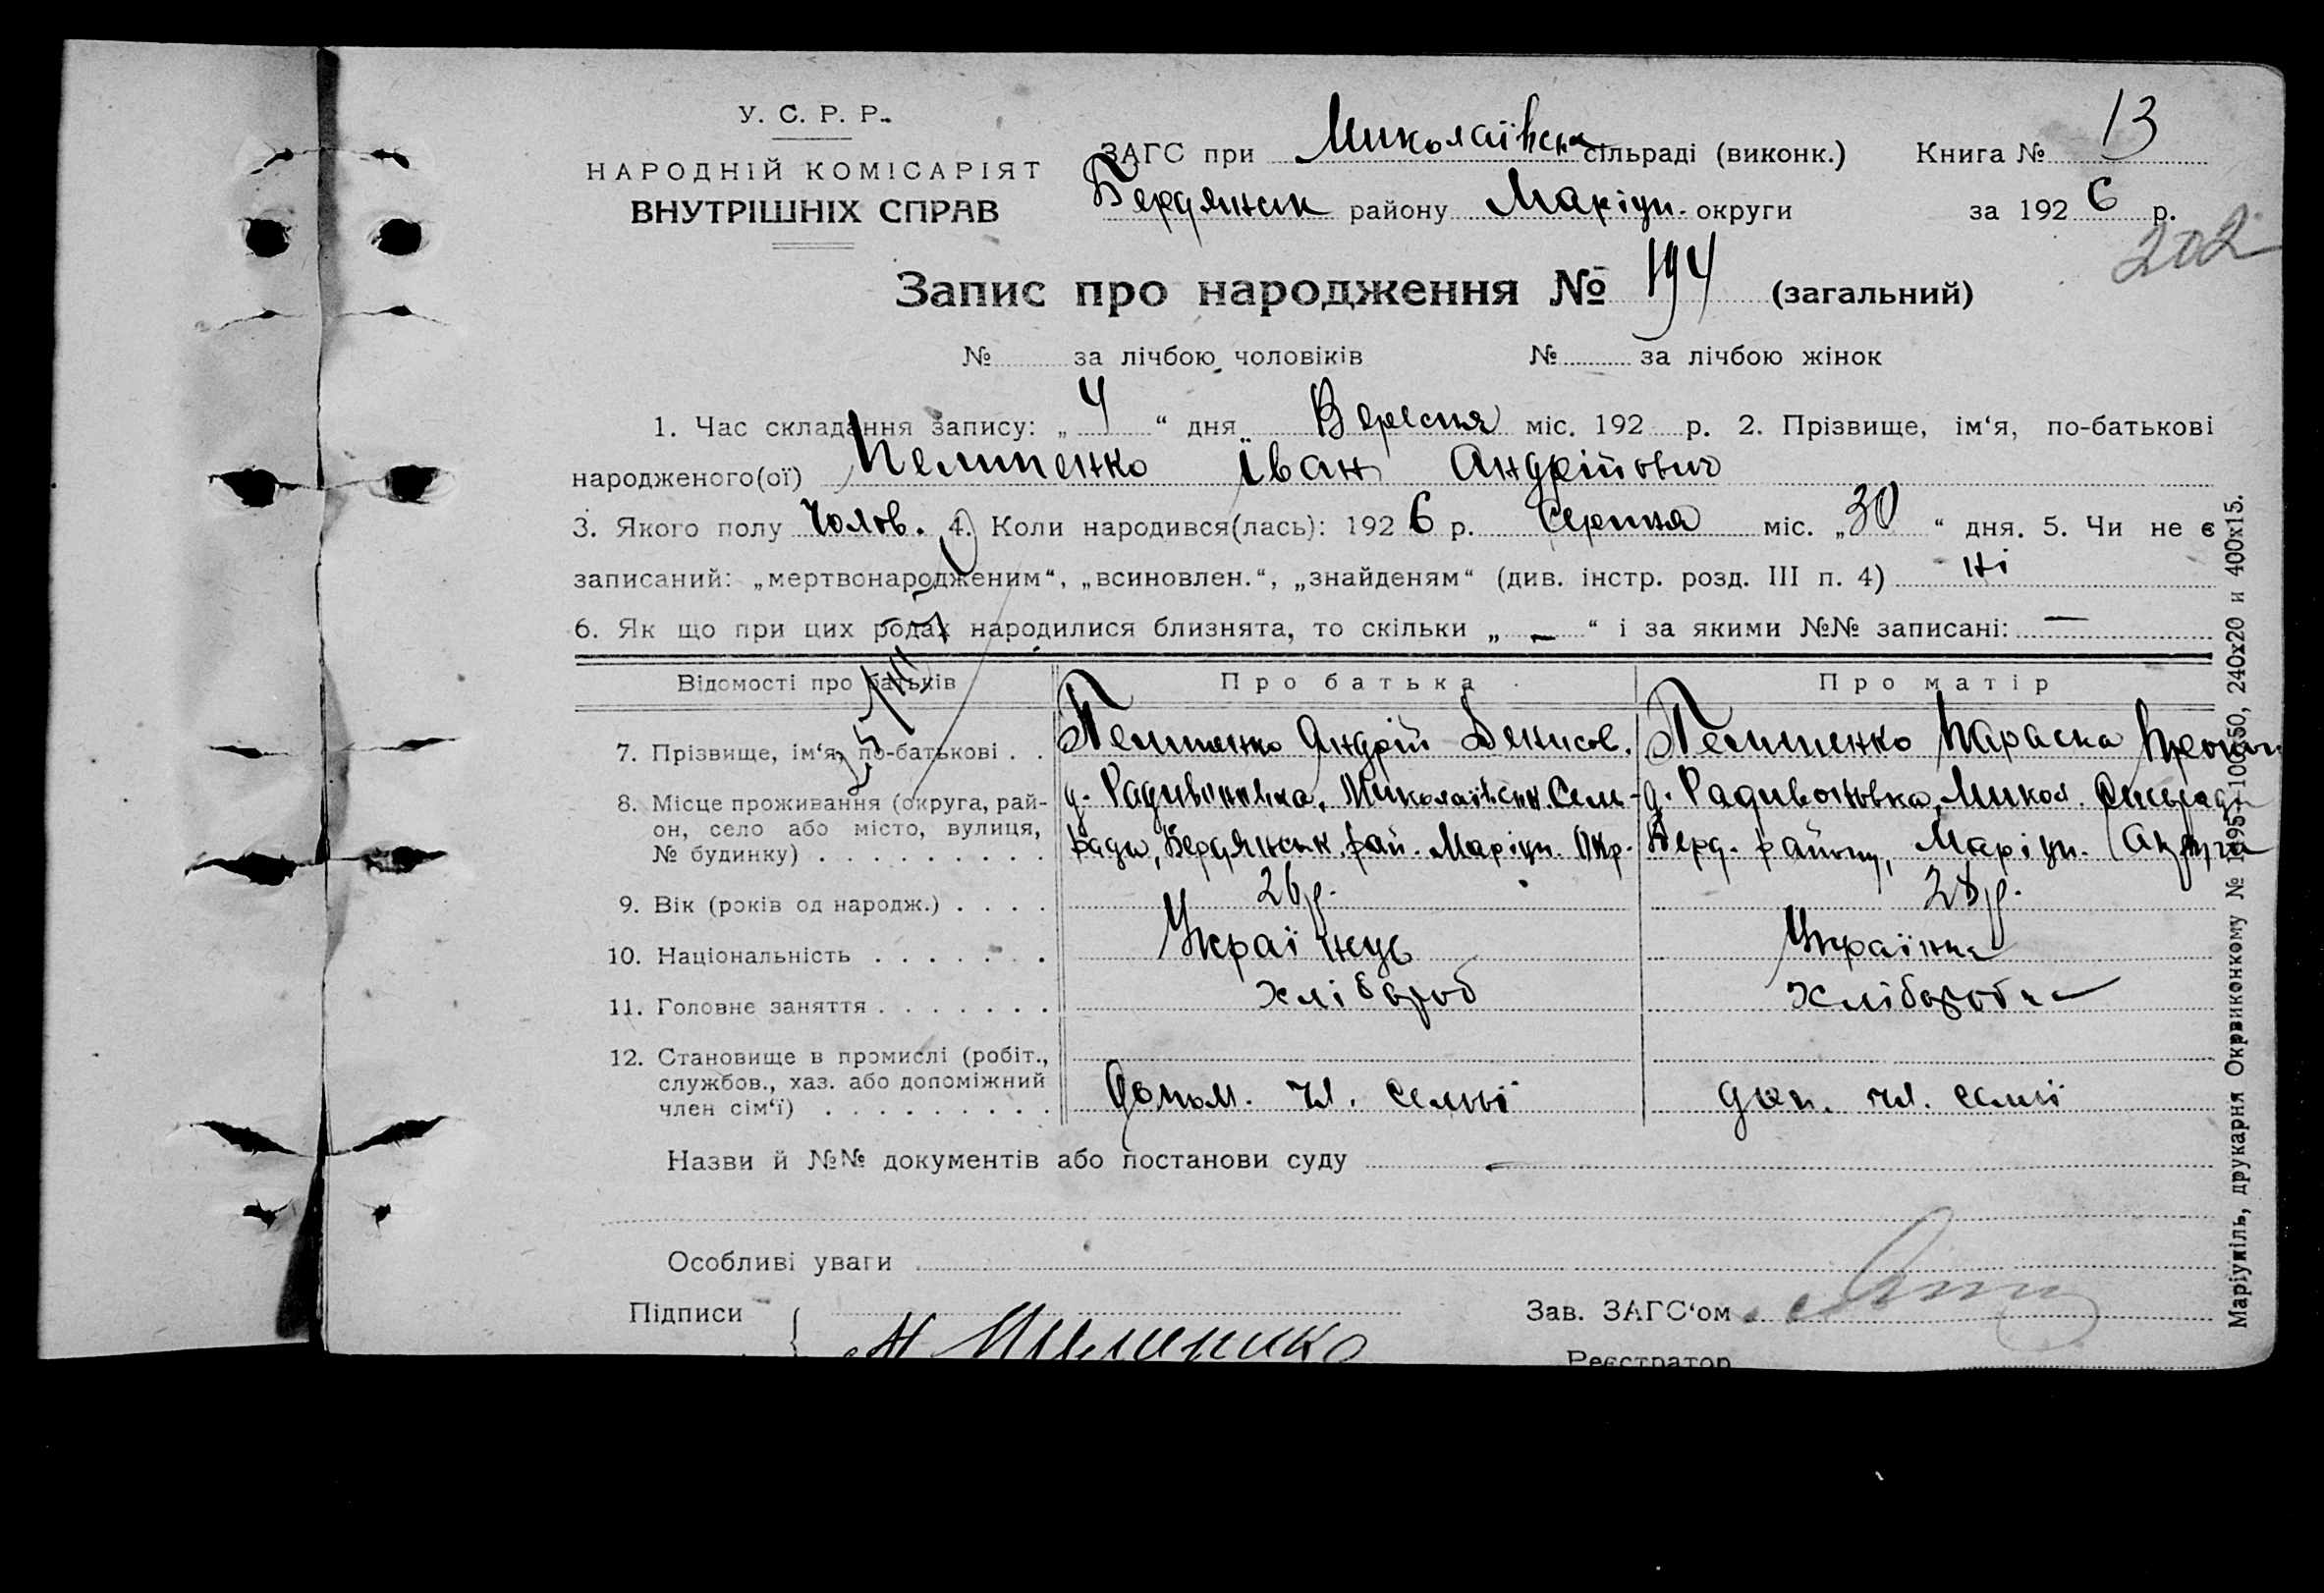 У. С. Р. Р.
НАРОДНІЙ КОМІСАРІЯТ
ВНУТРІШНІХ СПРАВ
ЗАГС при Миколаївськ сільраді (виконк.) Книга № 13
Бердянськ району Маріуп. округи за 1926 р.
202
Запис про народження № 194 (загальний)
№ за лічбою чоловіків № за лічбою жінок
1. Час складання запису: „ 4 “ дня Вересня міс. 192 р. 2. Прізвище, ім‘я, по-батькові
народженого(ої) Пелипенко Іван Андрійович
3. Якого полу Чолов. 4. Коли народився(лась): 1926 р. Серпня міс. „30“ дня. 5. Чи не є
записаний: „мертвонародженим“, „всиновлен.“, „знайденям“ (див. інстр. розд. III п. 4) Ні
6. Як що при цих родах народилися близнята, то скільки „ — “ і за якими №№ записані: —
Відомості про батьків Про батька Про матір
7. Прізвище, ім‘я, по-батькові . . Пелипенко Андрій Денисов. Пелипенко Параска
8. Місце проживання (округа, рай-
он, село або місто, вулиця,
№ будинку) . . . . . . . . .
д. Радивонівка, Миколаївськ. Сель-
ради, Бердянськ. рай. Маріуп. Окр.
д. Радивоновка, Микол.
Берд. району, Маріуп.
9. Вік (років од народж.) . . . . 26 р. 28 р.
10. Національність . . . . . . . Українець Українка
11. Головне заняття . . . . . . . хлібороб хліборобка
12. Становище в промислі (робіт.,
службов., хаз. або допоміжний
член сім‘ї) . . . . . . . . .
допом. чл. семьї доп. чл. семьї
Назви й №№ документів або постанови суду —
Особливі уваги
Підписи Зав. ЗАГС‘ом
Реєстратор
Маріупіль, друкарня Окрвиконкому № 1495-100x50, 240x20 и 400x15.